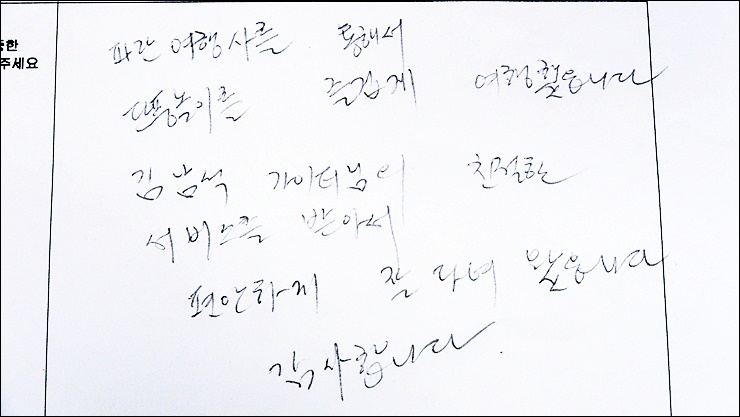 한
주세요
파란여행사를 통해서
단풍놀이를 즐겁게 여행했읍니다
김남석 가이더님의 친절한
서비스를 받아서
편안하게 잘 다녀 왔읍니다
감사합니다